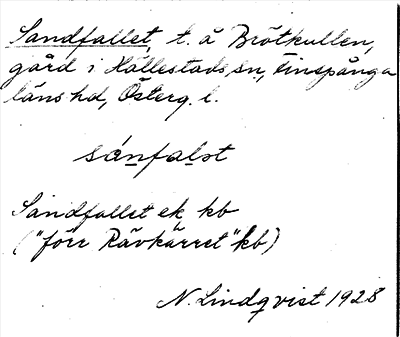 Sandfallet, t. å Brötkullen,
gård i Hällestads sn, Finspånga
läns hd, Österg. l.
sánfalət
Sandfallet ek kb
("förr Rävkärret" kb)
N. Lindqvist 1928